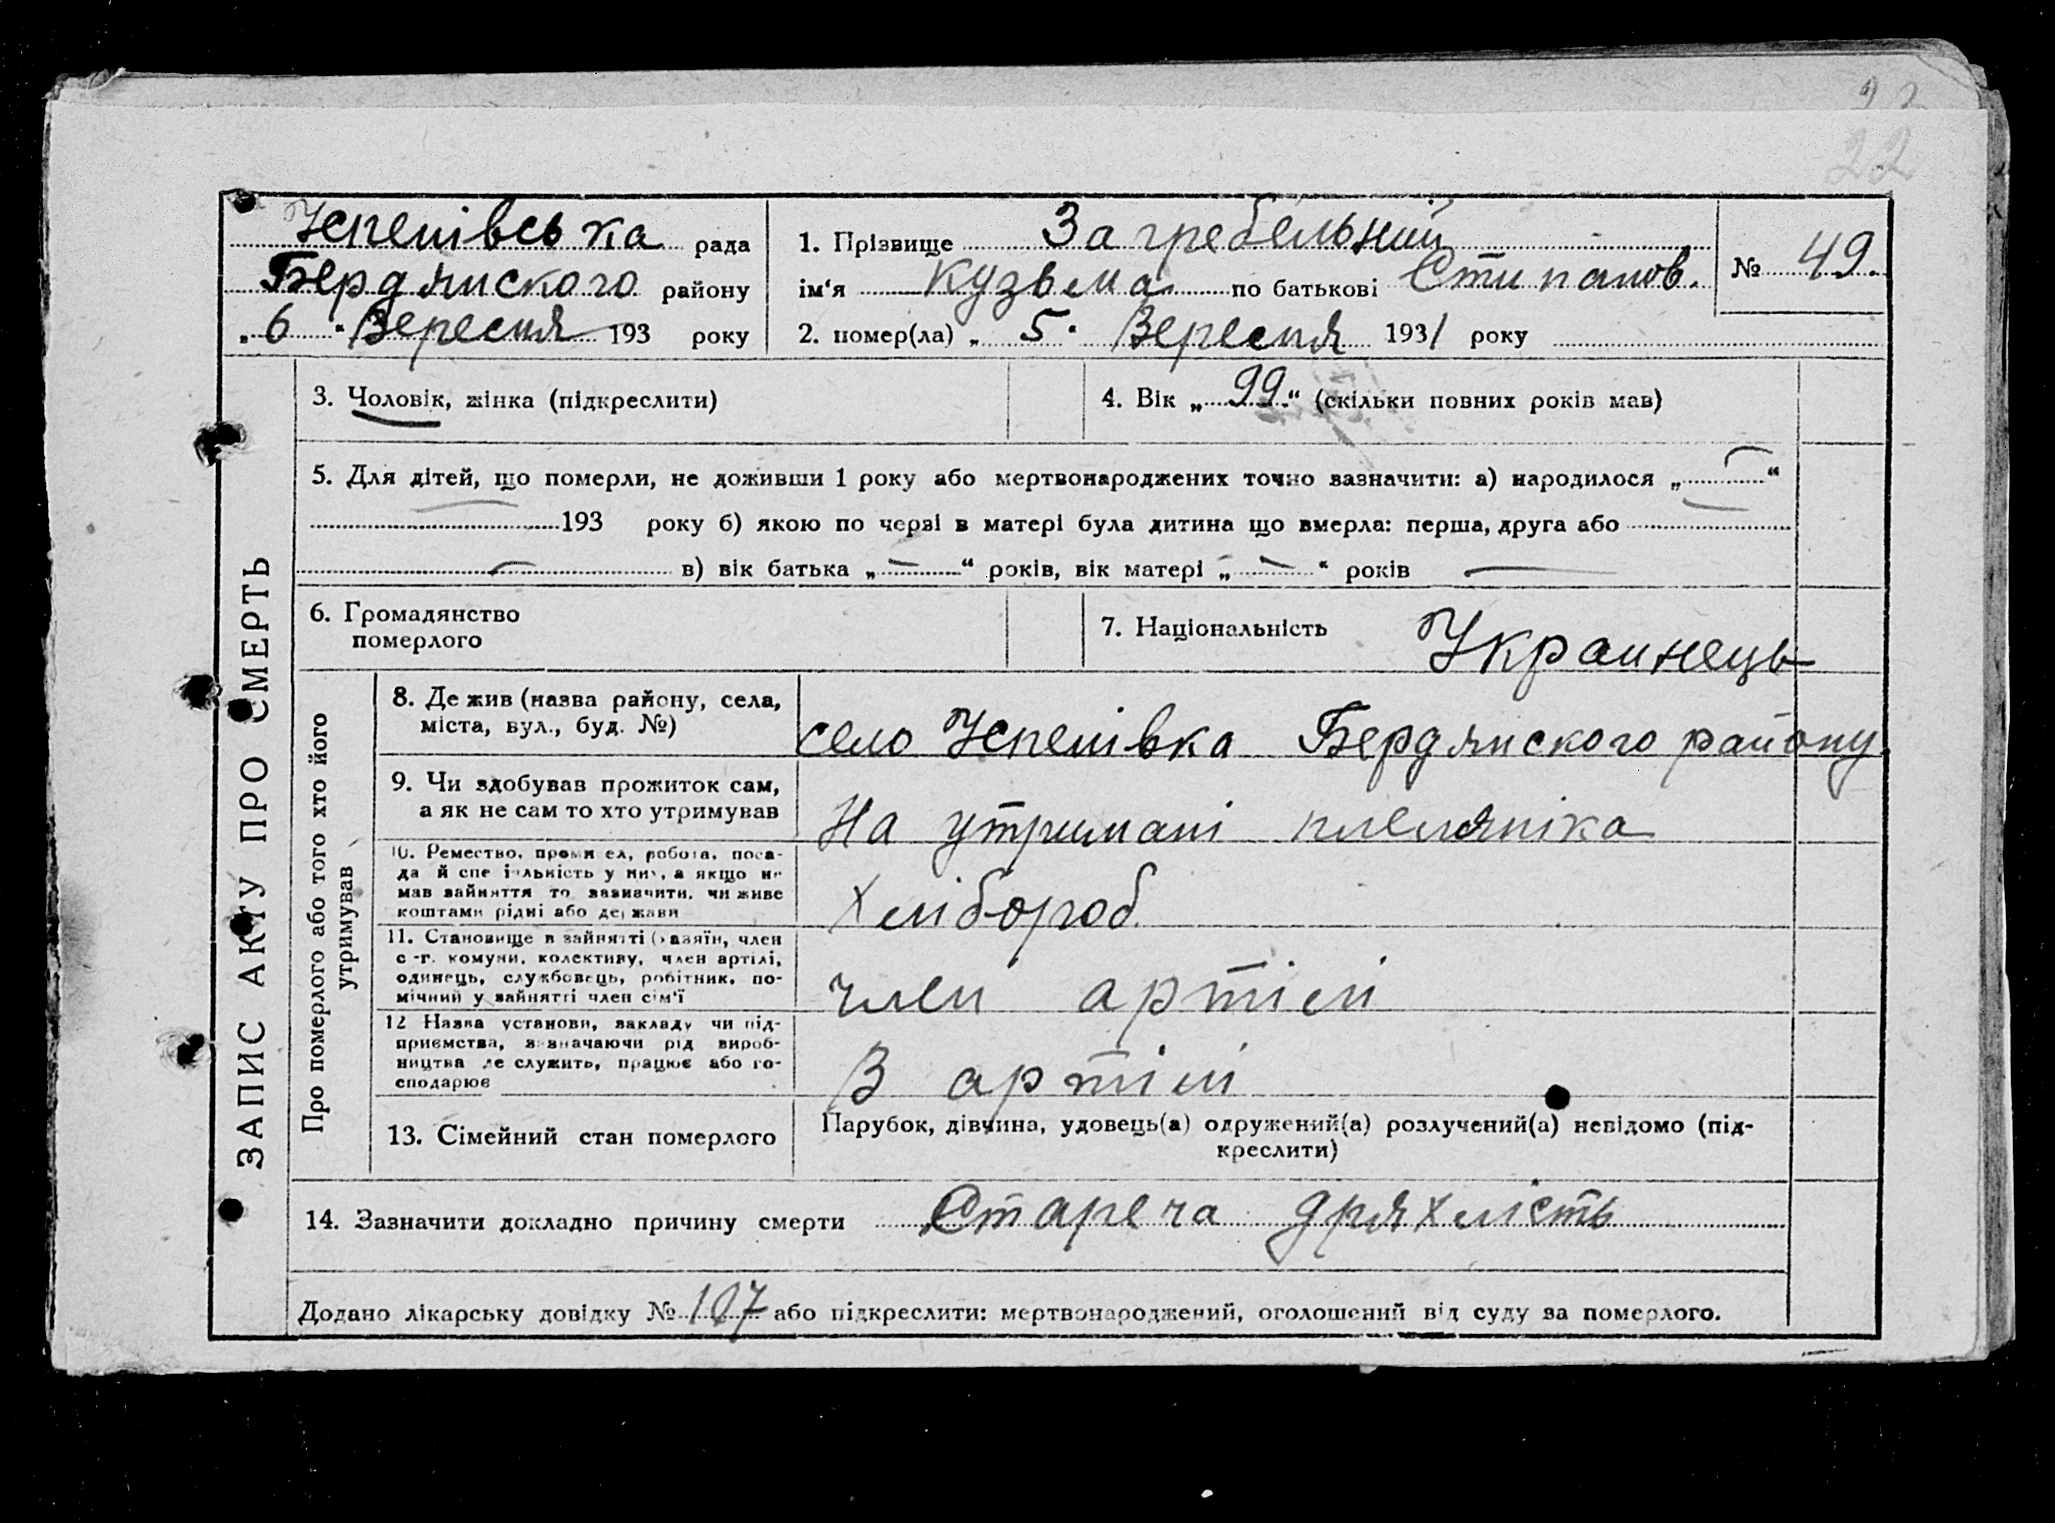 22
Успенівська рада
Бердянского району
„ 6 " Вересня 193 року
1. Прізвище Загребельний
ім'я Кузьма по батькові Стипанов.
2. помер(ла) „ 5 " Вересня 1931 року
№ 49.
ЗАПИС АКТУ ПРО СМЕРТЬ
3. Чоловік, жінка (підкреслити)
4. Вік „ 99 " (скільки повних років мав)
5. Для дітей, що померли, не доживши 1 року або мертвонароджених точно зазначити: а) народилося „ — "
— 193 року б) якою по черзі в матері була дитина що вмерла: перша, друга або —
— в) вік батька „ — " років, вік матері „ — " років —
6. Громадянство
померлого
7. Національність Украинець
Про померлого або того хто його
утримував
8. Де жив (назва району, села,
міста, вул., буд. №)
село Успенівка Бердянского району.
9. Чи здобував прожиток сам,
а як не сам то хто утримував
На утримані племяніка
10. Ремество, промисел, робота, поса-
да й спеціяльність у них, а якщо не
мав зайняття то зазначити, чи живе
коштами рідні або держави
Хлібороб.
11. Становище в зайнятті (хазяїн, член
с.-г. комуни, колективу, член артілі,
одинець, службовець, робітник, по-
мічний у зайнятті член сім'ї
член артілі
12 Назва установи, закладу чи під-
приємства, зазначаючи рід вироб-
ництва де служить, працює або го-
сподарює
В артілі
13. Сімейний стан померлого
Парубок, дівчина, удовець(а) одружений(а) розлучений(а) невідомо (під-
креслити)
14. Зазначити докладно причину смерти Стареча дряхлість
Додано лікарську довідку № 107 або підкреслити: мертвонароджений, оголошений від суду за померлого.